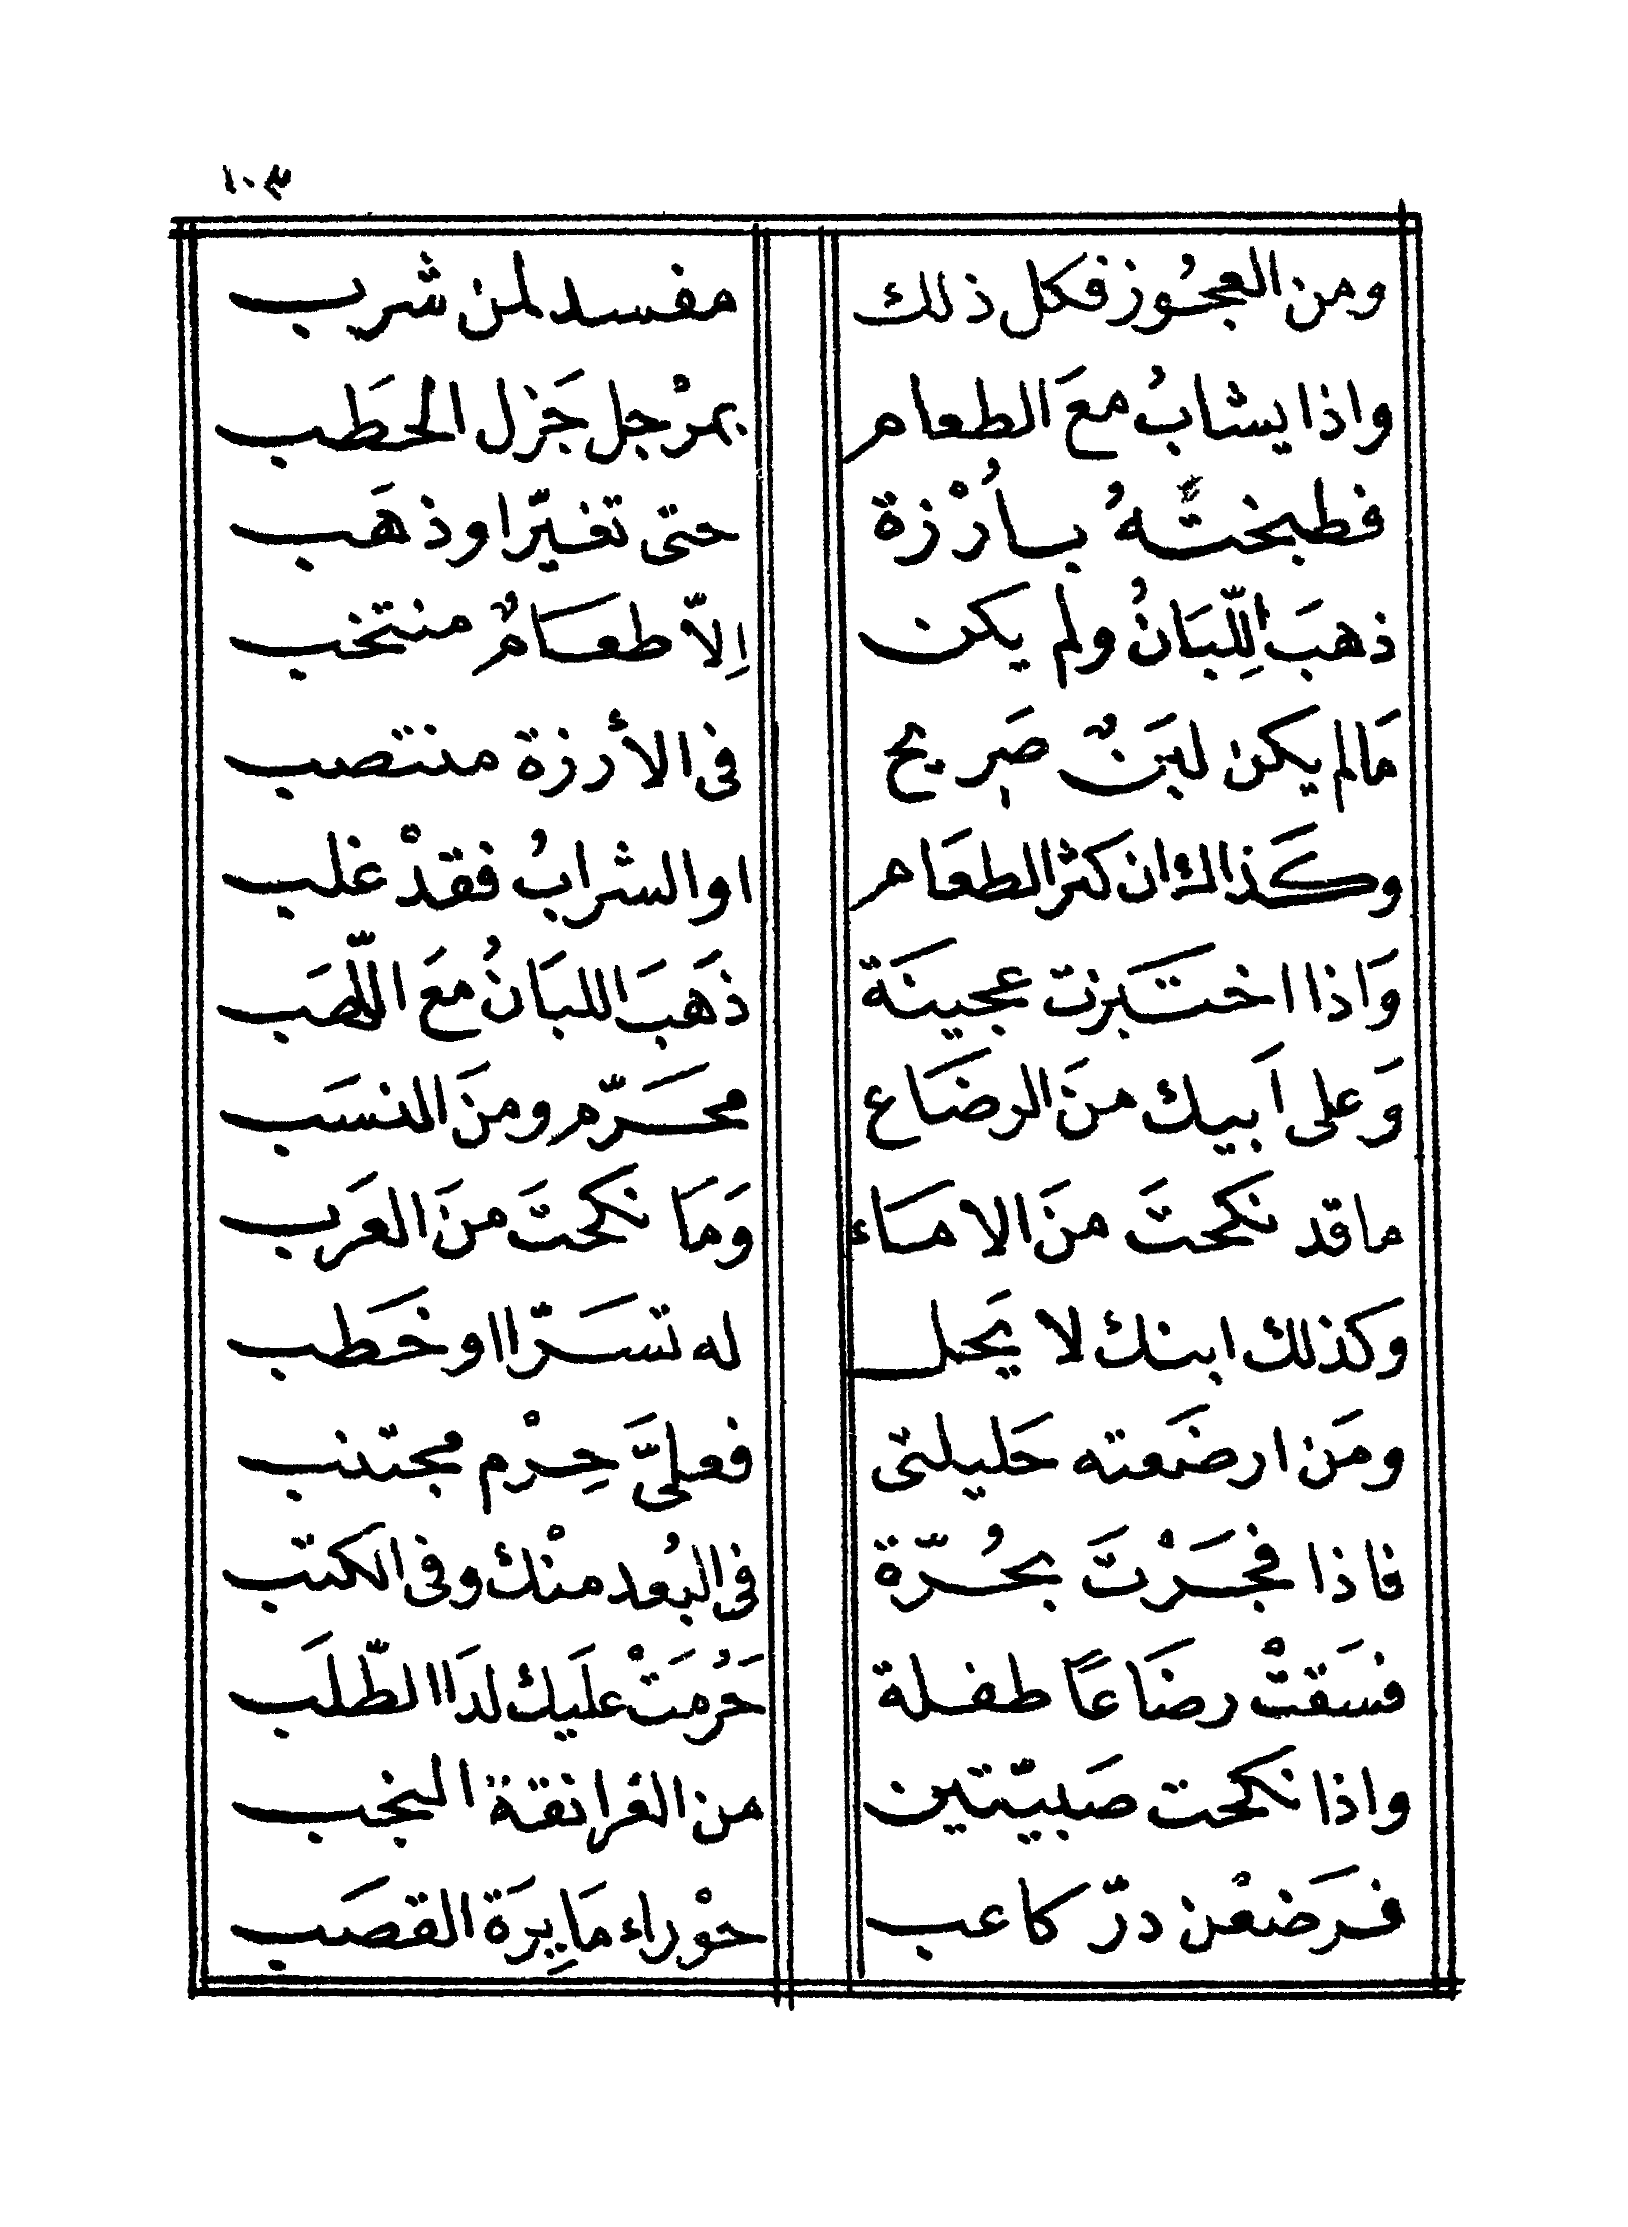 ١٠٣
ومن العجُوز فكل ذلك مفسد لمن شرب
واذا يشابُ معَ الطعام بمرْجل جَزل الحطَب
فطبختَّهُ بأُرْزة حتى تغيّر او ذهَب
ذهبَ اللِّبَانُ ولم يكن اِلاّ طعَامٌ منتخب
مَالم يكن لبَنٌ صَرِيح فى الأرزة منتصب
وكَذاك ان كثر الطعَام او الشرابُ فقدْ غلب
وَاذا اختَبزت عجينَة ذَهَبَ اللبَانُ معَ اللّصَب
وَعلى اَبيك منَ الرضَاع محَرّم ومنَ النسَب
ما قد نكحتَ منَ الامَاء وَمَا نكحتَ منَ العرَب
وكذلك ابنك لا يحَل له تسَرّا او خَطب
ومَن ارضَعته حَليلتى فعلىَّ حِرْم مجتنب
فاذا فجَرْتَ بحُرّة فى البُعد منْك وفى الكتب
فسَقتْ رضَاعًا طفلة حَرُمَتْ علَيك لدَا الطّلَب
واذا نكحت صَبيّتين من الغرانقة النجب
فرَضعْن درّ كاعب حوْراء مَايِرَة القصَب